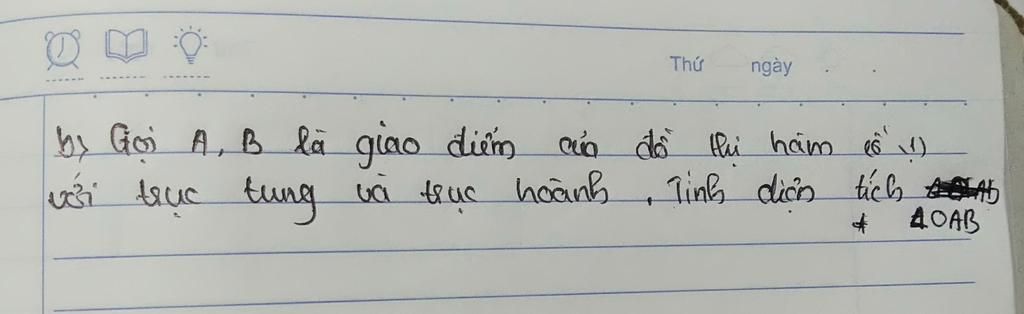 Thứ ngày . .
b) Gọi A, B là giao điểm của đồ thị hàm số (1)
với trục tung và trục hoành. Tính diện tích
ΔOAB